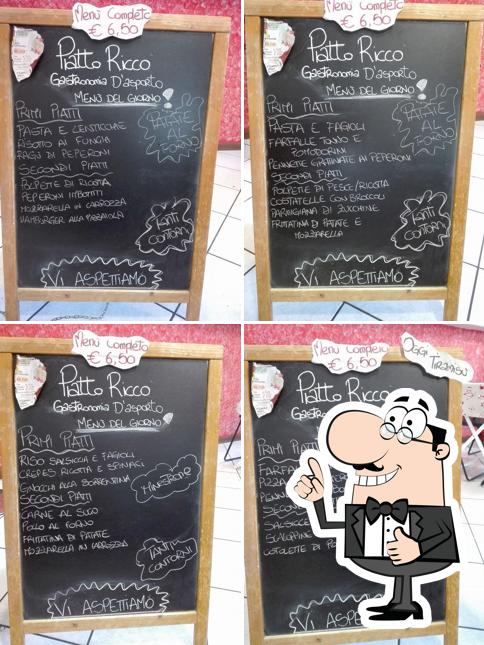 Menù Completo
€ 6,50
Piatto Ricco
Gastronomia D'asporto
MENÙ DEL GIORNO!
PRIMI PIATTI
PASTA E LENTICCHIE
RISOTTO AI FUNGHI
RAGÙ DI PEPERONI
SECONDI PIATTI
POLPETTE DI RICOTTA
PEPERONI IMBOTTITI
MOZZARELLA IN CARROZZA
HAMBURGER ALLA PIZZAIOLA
PATATE
AL
FORNO
TANTI
CONTORNI
Vi ASPETTIAMO
Menù Completo
€ 6,50
Piatto Ricco
Gastronomia D'asporto
MENÙ DEL GIORNO!
PRIMI PIATTI
PASTA E FAGIOLI
FARFALLE TONNO E
POMODORINI
PENNETTE GRATINATE AI PEPERONI
SECONDI PIATTI
POLPETTE DI PESCE/RICOTTA
COSTATELLE CON BROCCOLI
PARMIGIANA DI ZUCCHINE
FRITTATINA DI PATATE E
MOZZARELLA
PATATE
AL
FORNO
TANTI
CONTORNI
Vi ASPETTIAMO
Menù Completo
€ 6,50
Piatto Ricco
Gastronomia D'asporto
MENÙ DEL GIORNO!
PRIMI PIATTI
RISO SALSICCIA E FAGIOLI
CREPES RICOTTA E SPINACI
GNOCCHI ALLA SORRENTINA
SECONDI PIATTI
CARNE AL SUGO
POLLO AL FORNO
FRITTATINA DI PATATE
MOZZARELLA IN CARROZZA
MINESTRONE
TANTI
CONTORNI
Vi ASPETTIAMO
Menù Completo
€ 6,50
OGGI
TIRAMISU
Piatto Ricco
PRIMI PIATTI
SALSICCE
COTOLETTE DI
Vi